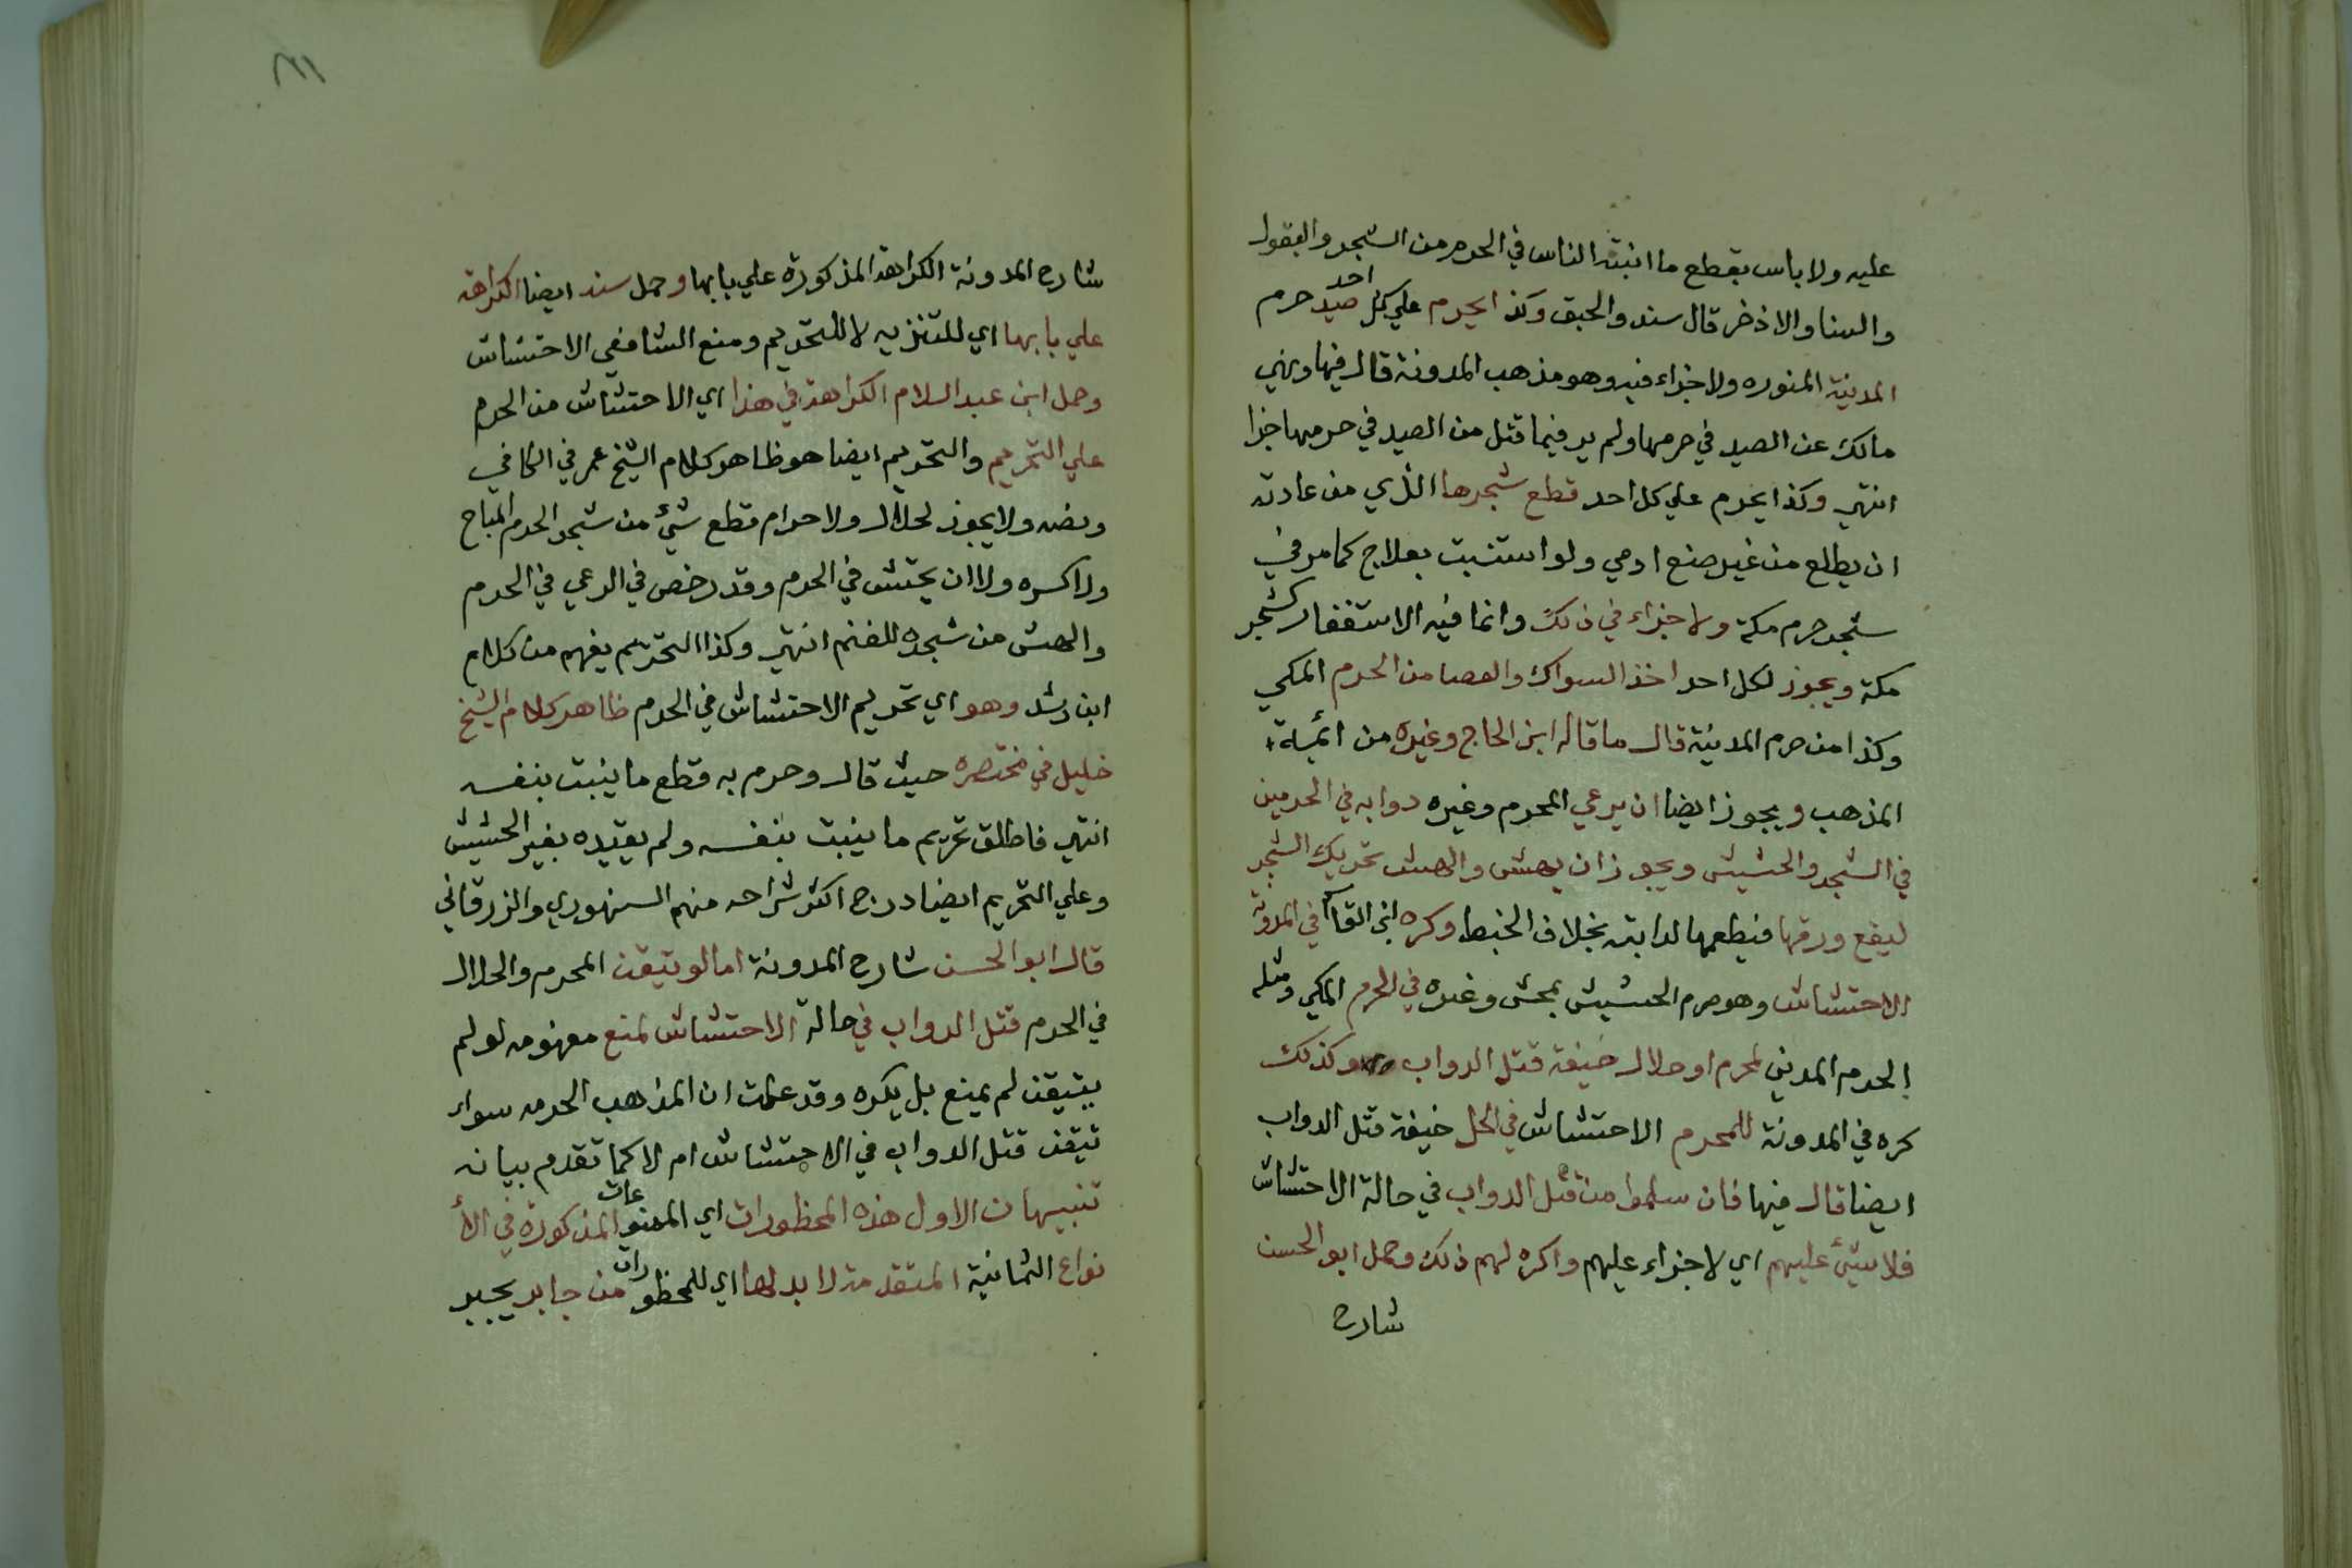 عليه ولا باس بقطع ما انبته الناس في الحرم من الشجر والبقول
والسنا والاذخر قال سند والحبق وكذا يحرم علي كل احد صيد حرم
المدينة المنوره ولا جزاء فيه وهو مذهب المدونة قال فيها ونهي
مالك عن الصيد في حرمها ولم ير فيما قتل من الصيد في حرمها جزا
انتهي وكذا يحرم علي كل احد قطع شجرها الذي من عادته
ان يطلع من غير صنع ادمي ولو استنبت بعلاج كما مر في
شجر حرم مكة ولا جزاء في ذلك وانما فيه الاستغفار كشجر
مكة ويجوز لكل احد اخذ السواك والعصا من الحرم المكي
وكذا من حرم المدينة قال ما قاله ابن الحاج وغيره من ائمة
المذهب ويجوز ايضا ان يرعي المحرم وغيره دوابه في الحرمين
في الشجر والحشيش ويجوز ان يهش والهش تحريك الشجر
ليقع ورقها فيطعمها لدابته بخلاف الخبط وكره ابن القاسم في المدونة
الاحتشاش وهو صرم الحشيش بمحش وغيره في الحرم المكي ومثله
الحرم المدني لمحرم او حلال خيفة قتل الدواب وكذلك
كره في المدونة للمحرم الاحتشاش في الحل خيفة قتل الدواب
ايضا قال فيها فان سلموا من قتل الدواب في حالة الاحتشاش
فلا شئ عليهم اي لا جزاء عليهم واكره لهم ذلك وحمل ابو الحسن
شارح
٣١
شارح المدونة الكراهة المذكورة علي بابها وحمل سند ايضا الكراهة
علي بابها اي للتنزيه لا للتحريم ومنع الشافعي الاحتشاش
وحمل ابن عبد السلام الكراهة في هذا اي الاحتشاش من الحرم
علي التحريم والتحريم ايضا هو ظاهر كلام الشيخ عمر في الكافي
ونصه ولا يجوز لحلال ولا حرام قطع شئ من شجر الحرم المباح
ولا كسره ولا ان يحتش في الحرم وقد رخص في الرعي في الحرم
والهش من شجره للغنم انتهي وكذا التحريم يفهم من كلام
ابن رشد وهو اي تحريم الاحتشاش في الحرم ظاهر كلام الشيخ
خليل في مختصره حيث قال وحرم به قطع ما ينبت بنفسه
انتهي فاطلق تحريم ما ينبت بنفسه ولم يقيده بغير الحشيش
وعلي التحريم ايضا درج اكثر شراحه منهم السنهوري والزرقاني
قال ابو الحسن شارح المدونة اما لو تيقن المحرم والحلال
في الحرم قتل الدواب في حالة الاحتشاش لمنع مفهومه لو لم
يتيقن لم يمنع بل يكره وقد علمت ان المذهب الحرمه سواء
تيقن قتل الدواب في الاحتشاش ام لا كما تقدم بيانه
تنبيهان الاول هذه المحظورات اي الممنوعات المذكورة في الأ
نواع الثمانية المتقدمة لا بد لها اي للمحظورات من جابر يجبر